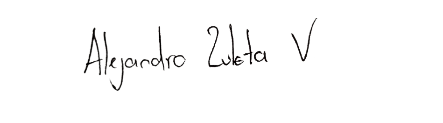 Alejandro Zuleta V